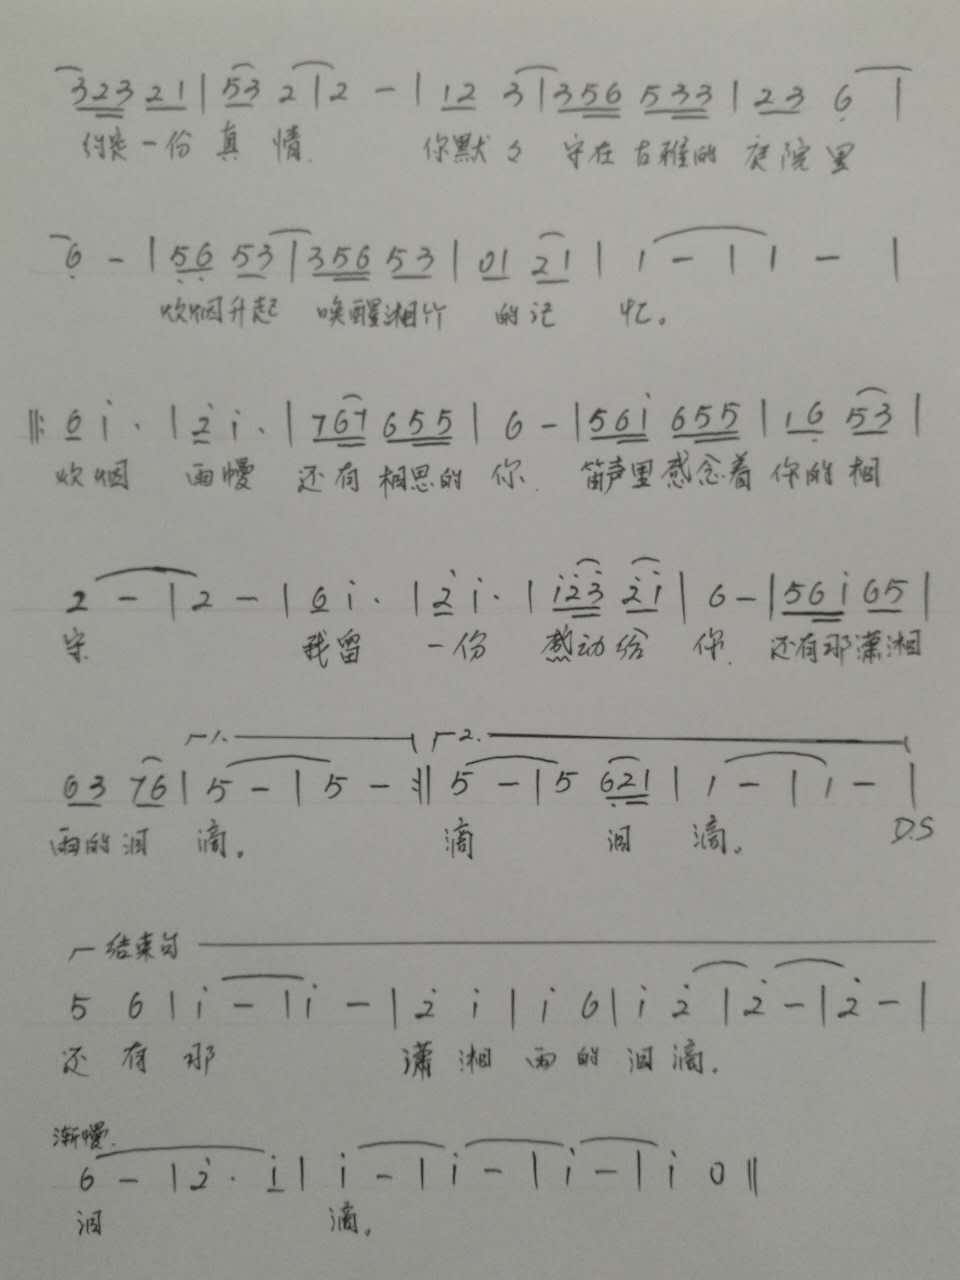 323 21 | 53 2 | 2 - | 12 3 | 356 533 | 23 6 |
约定一份真情 你默々守在古雅的庭院里
6 - | 56 53 | 356 53 | 01 21 | 1 - | 1 - |
炊烟升起 唤醒湘竹 的记忆。
‖: 6 i · | 2 i · | 767 655 | 6 - | 56i 655 | 16 53 |
炊烟 雨幔 还有相思的你 笛声里感念着你的相
2 - | 2 - | 6 i · | 2 i · | i23 2i | 6 - | 56i 65 |
守 我留一份感动给你 还有那潇湘
1. 2.
63 76 | 5 - | 5 - :‖ 5 - | 5 621 | 1 - | 1 - |
雨的泪滴。 滴 泪滴。 D.S
结束句
5 6 | i - | i - | 2 i | i 6 | i 2 | 2 - | 2 - |
还有那 潇湘雨的泪滴。
渐慢
6 - | 2 · i | i - | i - | i - | i 0 ‖
泪 滴。